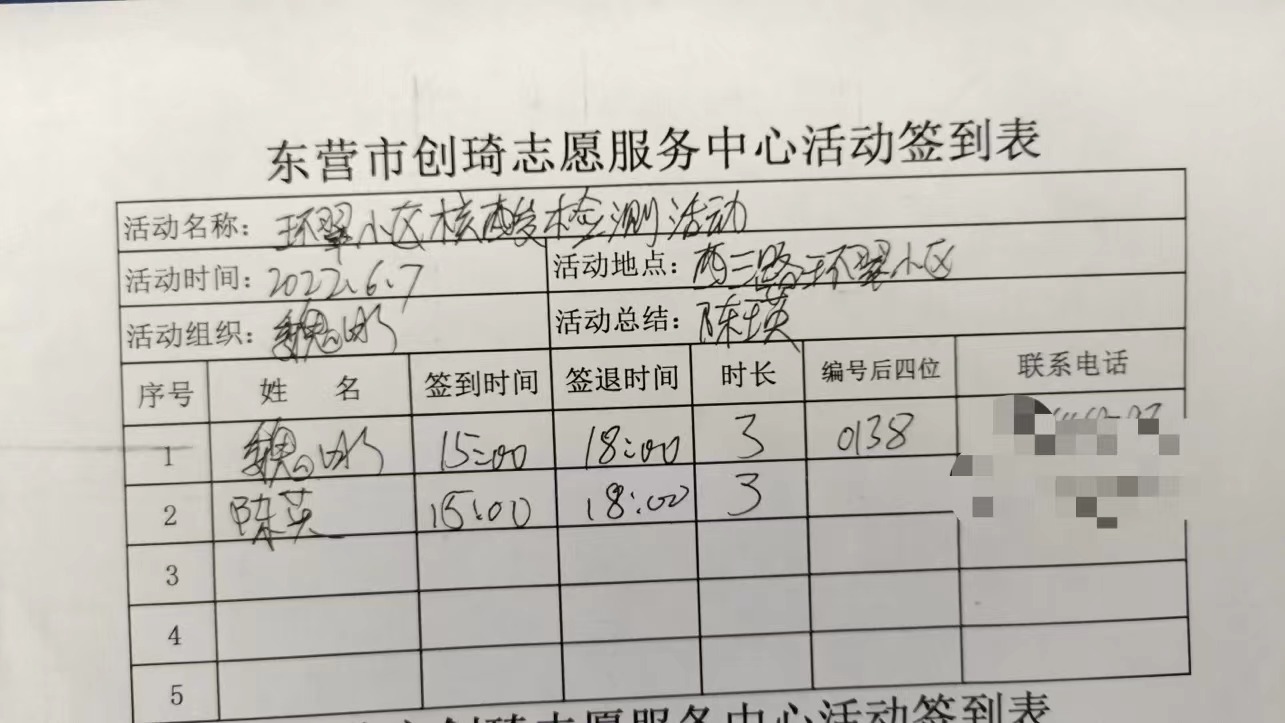 东营市创琦志愿服务中心活动签到表
活动名称：环翠小区核酸检测活动
活动时间：2022.6.7 活动地点：西三路环翠小区
活动组织：魏 活动总结：陈瑛
序号 姓 名 签到时间 签退时间 时长 编号后四位 联系电话
1 魏 15:00 18:00 3 0138
2 陈英 15:00 18:00 3
3
4
5
创琦志愿服务中心活动签到表